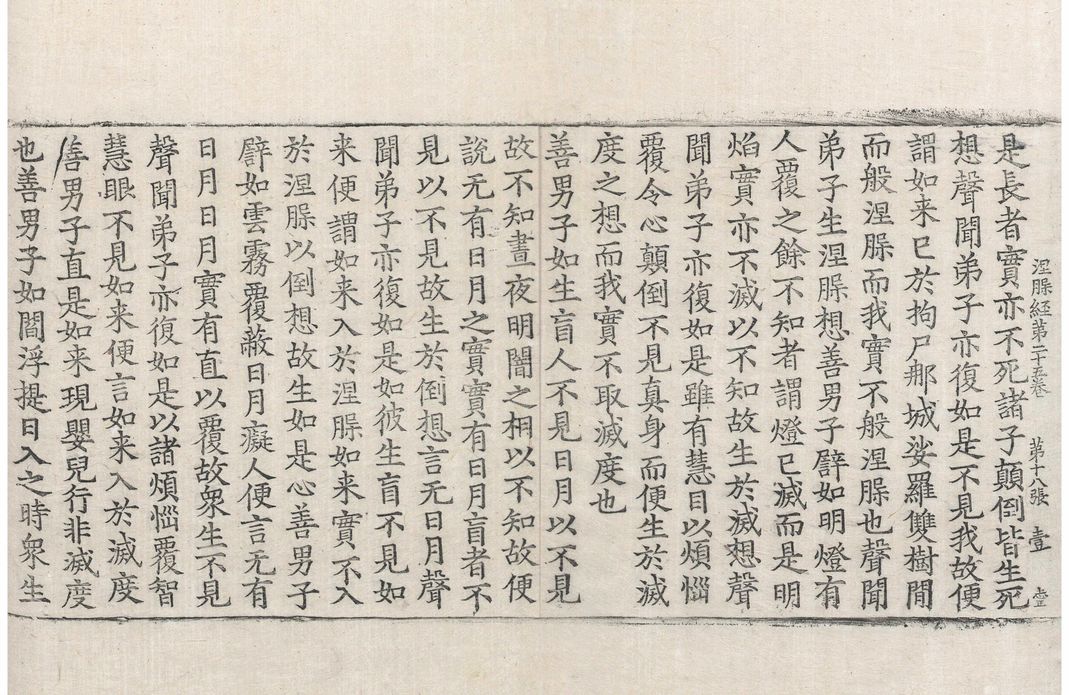 涅槃経第二十五卷 第十八張 壹 壹
是長者實亦不死諸子顛倒皆生死
想聲聞弟子亦復如是不見我故便
謂如来已於拘尸那城娑羅雙樹間
而般涅槃而我實不般涅槃也聲聞
弟子生涅槃想善男子譬如明燈有
人覆之餘不知者謂燈已滅而是明
焰實亦不滅以不知故生於滅想聲
聞弟子亦復如是雖有慧目以煩惱
覆令心顛倒不見真身而便生於滅
度之想而我實不取滅度也
善男子如生盲人不見日月以不見
故不知晝夜明闇之相以不知故便
說无有日月之實實有日月盲者不
見以不見故生於倒想言无日月聲
聞弟子亦復如是如彼生盲不見如
来便謂如来入於涅槃如来實不入
於涅槃以倒想故生如是心善男子
譬如雲霧覆蔽日月癡人便言无有
日月日月實有直以覆故衆生不見
聲聞弟子亦復如是以諸煩惱覆智
慧眼不見如来便言如来入於滅度
善男子直是如来現嬰兒行非滅度
也善男子如閻浮提日入之時衆生